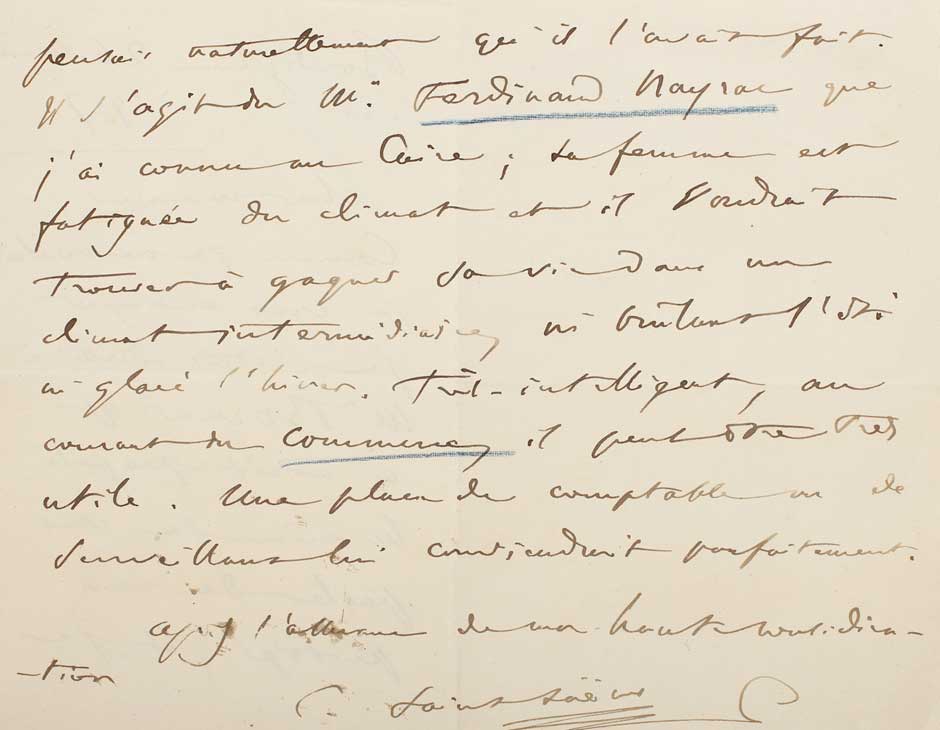 pensais naturellement qu'il l'avait fait.
Il s'agit du Mr. Ferdinand Nayrac que
j'ai connu au Caire ; sa femme est
fatiguée du climat et il voudrait
trouver à gagner sa vie dans un
climat intermédiaire, ni brûlant l'été
ni glacé l'hiver. Très-intelligent, au
courant du commerce, il peut être très
utile. Une place de comptable ou de
surveillant lui conviendrait parfaitement.
agréez l'assurance de ma haute considéra-
-tion
C. Saint-Saëns